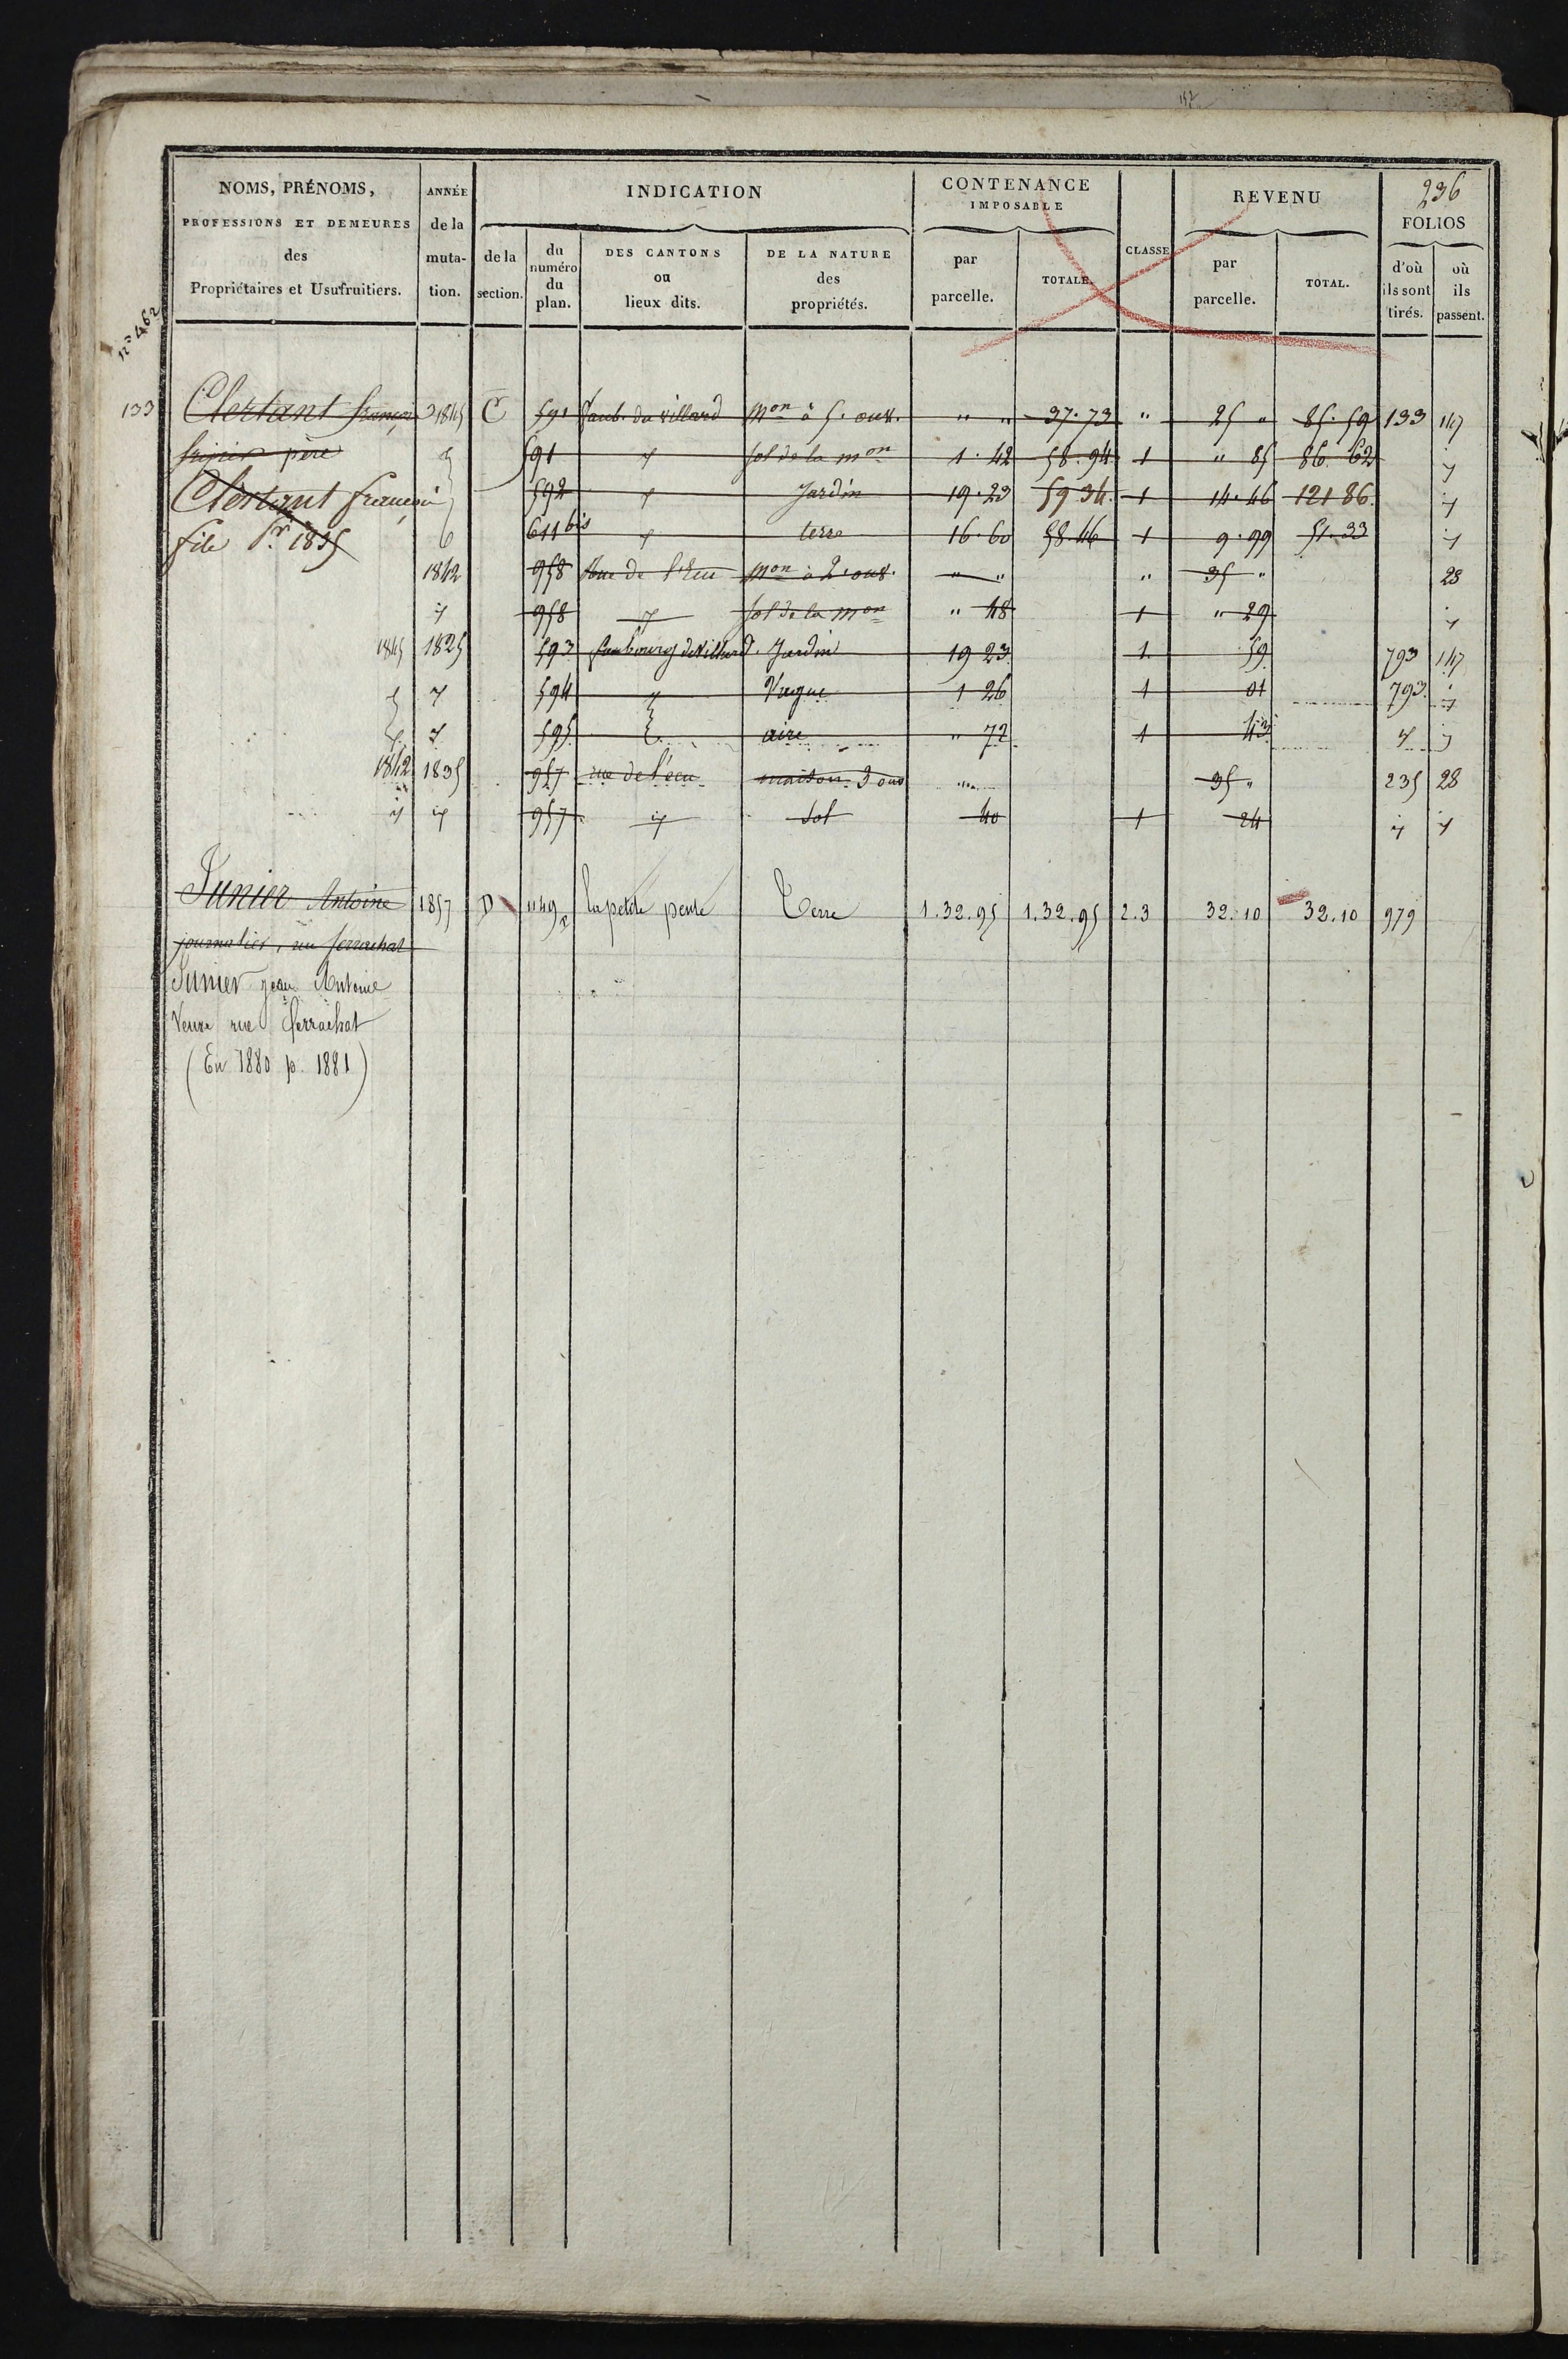 152
236
NOMS, PRÉNOMS, PROFESSIONS ET DEMEURES des Propriétaires et Usufruitiers.
ANNÉE de la mutation.
INDICATION
de la section.
du numéro du plan.
DES CANTONS ou lieux dits.
DE LA NATURE des propriétés.
CONTENANCE IMPOSABLE
par parcelle.
TOTALE.
CLASSE
REVENU
par parcelle.
TOTAL.
FOLIOS
d'où ils sont tirés.
où ils passent.
n° 462
133 Clertant françois 1845 C 591 faub. du villard Mon à 5. ouv. " " 37.73 " 25 " 85.59 133 147
fripier père 591 " sol de la mon 1.42 58.94 1 " 85 86.62 "
Clertant françois 592 " Jardin 19.23 59 34. 1 14.46 121 86. "
fils Pr 1835 611 bis " terre 16.60 58.46 1 9.99 51.33 "
1842 958 Rue de l'Ecu Mon à 2. ouv. " " " 35 " 28
" 958 " sol de la mon " 48 1 " 29 "
1845 1825 593 faubourg de Villard. Jardin 19 23 1. 59 793 147
" 594 " Vague 1 26 1 01 793 "
" 595 aire " 72 1 43 " "
1842 1835 957 rue de l'ecu maison 3 ouv " 35 " 235 28
" " 957 " sol 40 1 24 " "
Junier Antoine 1857 D 1149 la petite pente Terre 1.32.95 1.32.95 2.3 32.10 32.10 979
journalier, rue ferrachat
Junier Jean Antoine
Veuve rue ferrachat
(En 1880 p. 1881)